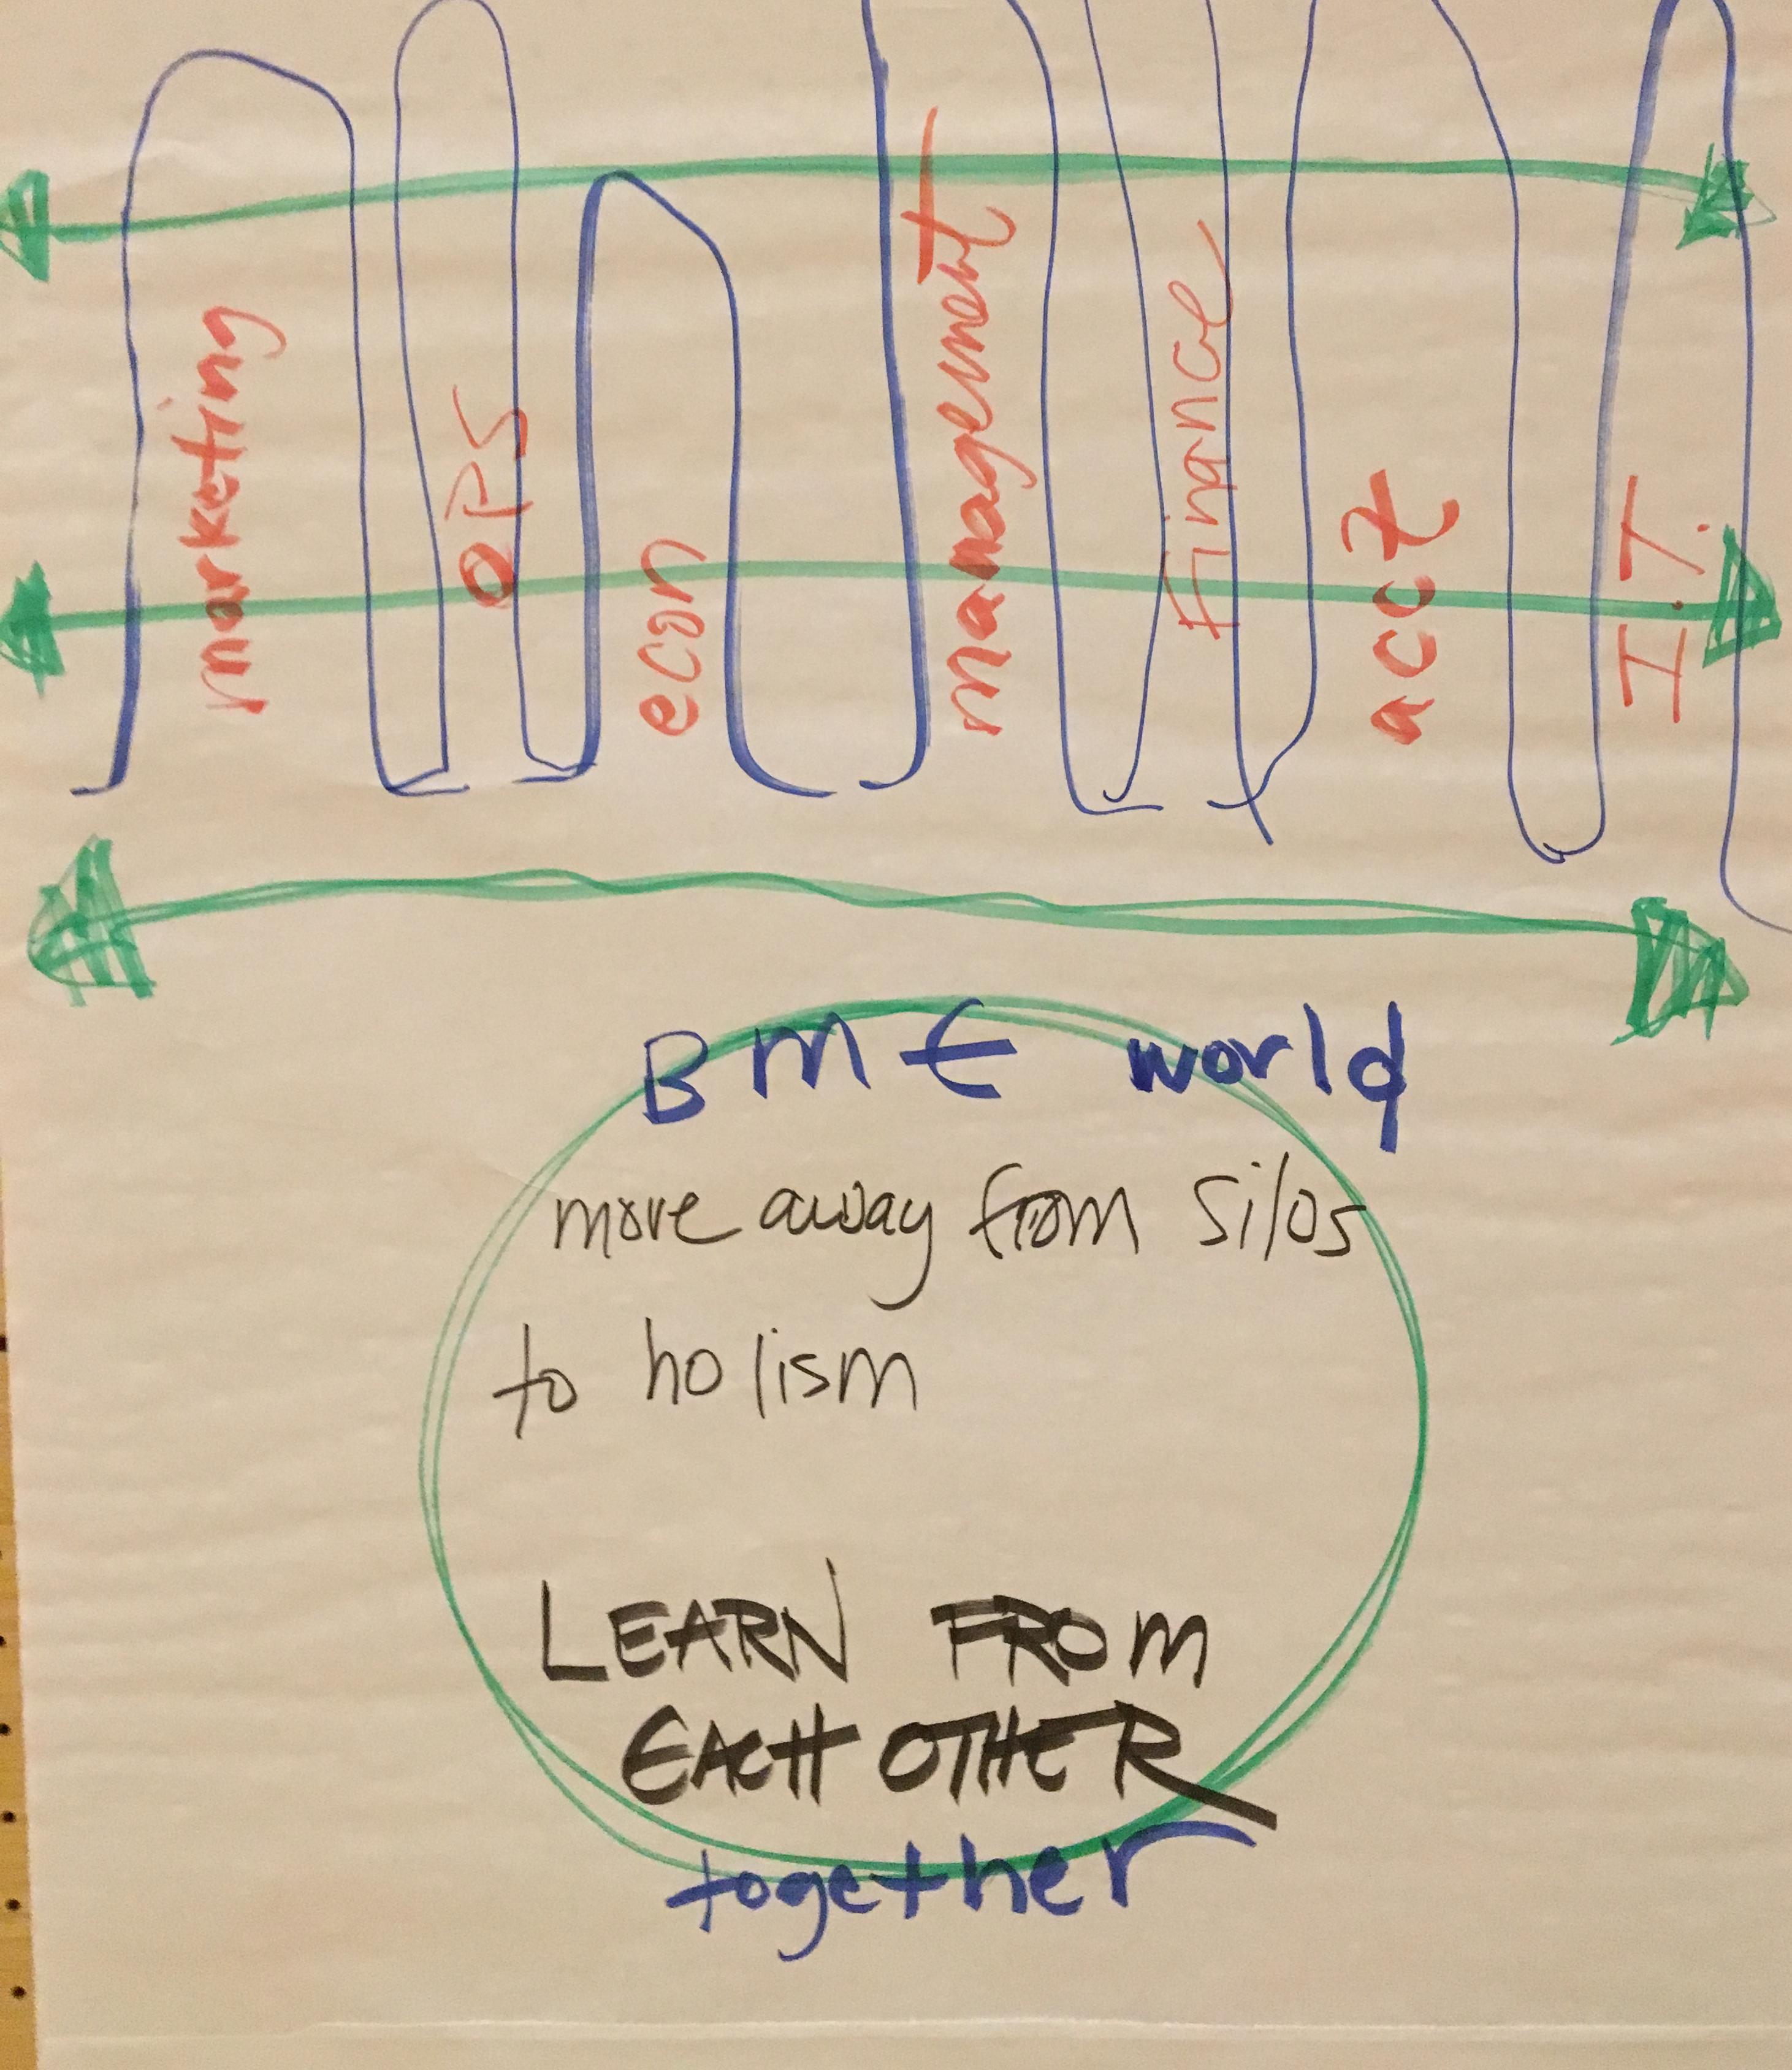 marketing
OPS
econ
management
Finance
acct
I.T.
BME world
move away from silos
to holism
LEARN FROM
EACH OTHER
together